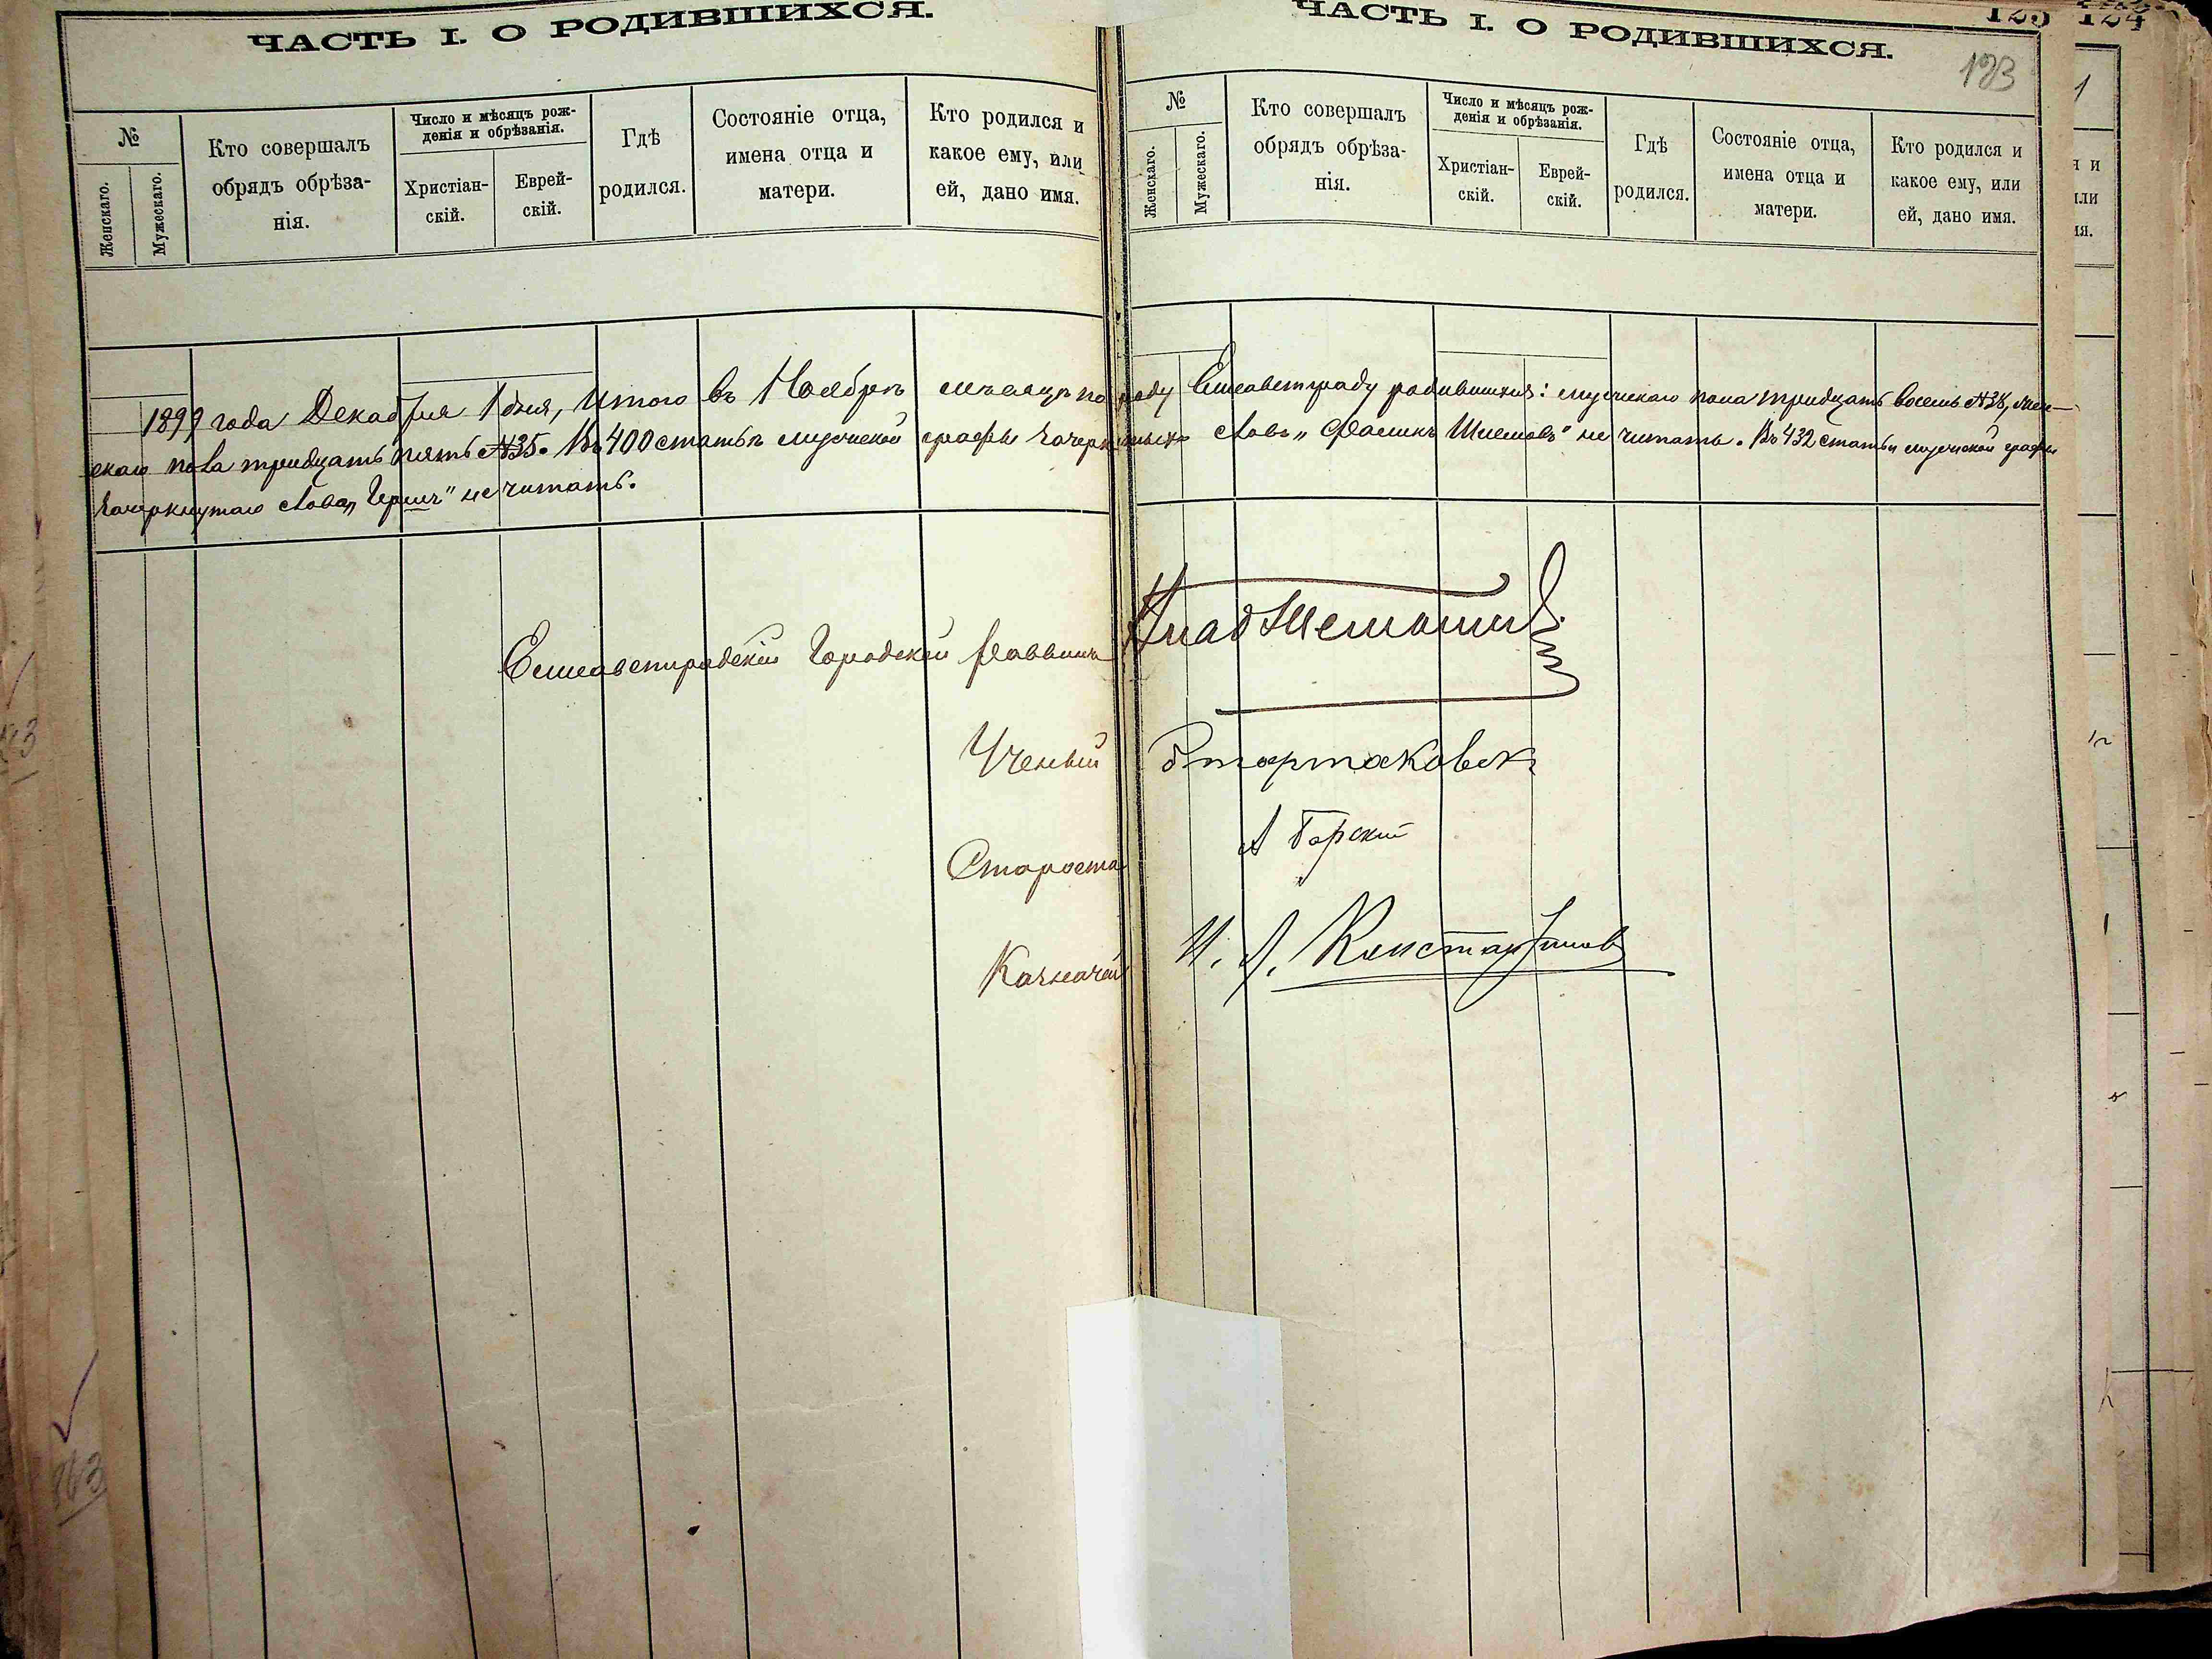 ЧАСТЬ I. О РОДИВШИХСЯ.
№
Женскаго.
Мужескаго.
Кто совершалъ
обрядъ обрѣза-
нія.
Число и мѣсяцъ рож-
денія и обрѣзанія.
Христіан-
скій.
Еврей-
скій.
Гдѣ
родился.
Состояніе отца,
имена отца и
матери.
Кто родился и
какое ему, или
ей, дано имя.
ЧАСТЬ I. О РОДИВШИХСЯ.
123
№
Женскаго.
Мужескаго.
Кто совершалъ
обрядъ обрѣза-
нія.
Число и мѣсяцъ рож-
денія и обрѣзанія.
Христіан-
скій.
Еврей-
скій.
Гдѣ
родился.
Состояніе отца,
имена отца и
матери.
Кто родился и
какое ему, или
ей, дано имя.
124
1899 года Декабря 1 дня, Итого въ Ноябрѣ мѣсяцѣ по городу Елисаветграду родившихся: мужскаго пола тридцать восемь №38, жен-
скаго пола тридцать пять №35. Въ 400 статьѣ мужской графы зачеркнутыхъ словъ не читать. Въ 432 статьи мужской графы
зачеркнутаго слова „Герш" не читать.
Елисаветградскій Городской Раввинъ
Ученый
Староста
А Горскій
Казначей